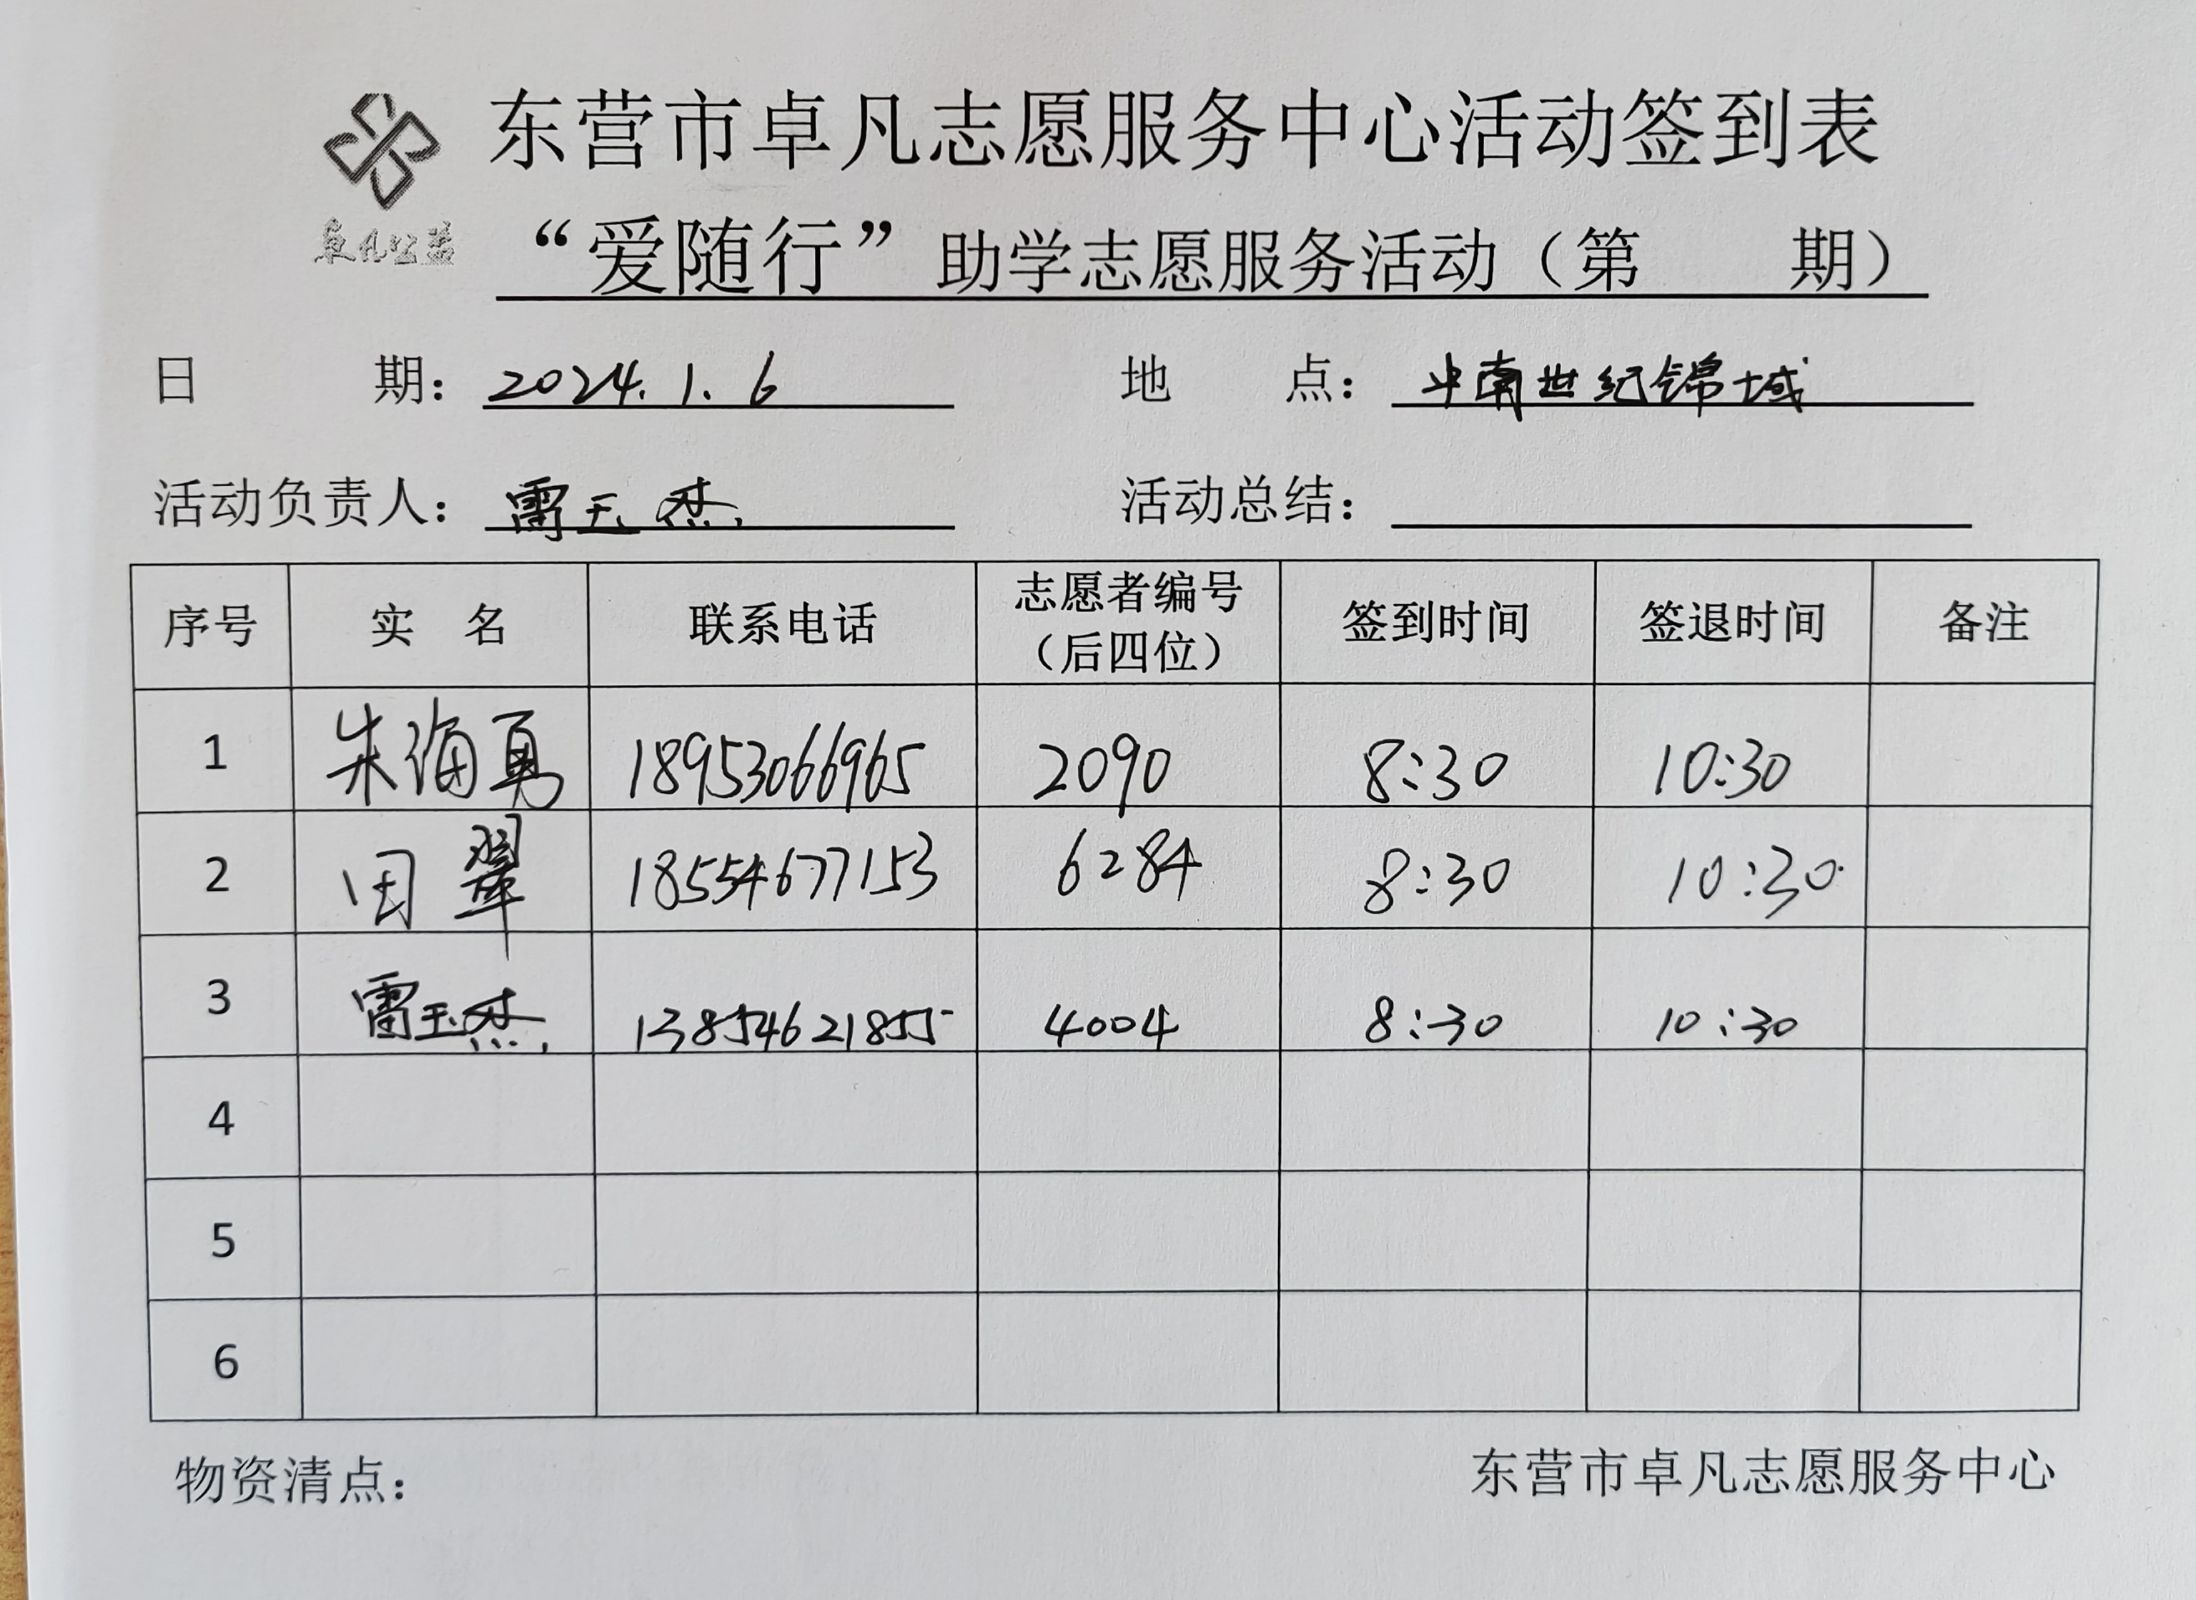 东营市卓凡志愿服务中心活动签到表
卓凡公益
“爱随行”助学志愿服务活动（第 期）
日 期：2024.1.6 地 点：斗南世纪锦城
活动负责人：雷玉杰 活动总结：
序号 实 名 联系电话 志愿者编号（后四位） 签到时间 签退时间 备注
1 朱海勇 18953066965 2090 8:30 10:30
2 田翠 18554677153 6284 8:30 10:30
3 雷玉杰 13854621855 4004 8:30 10:30
4
5
6
物资清点： 东营市卓凡志愿服务中心